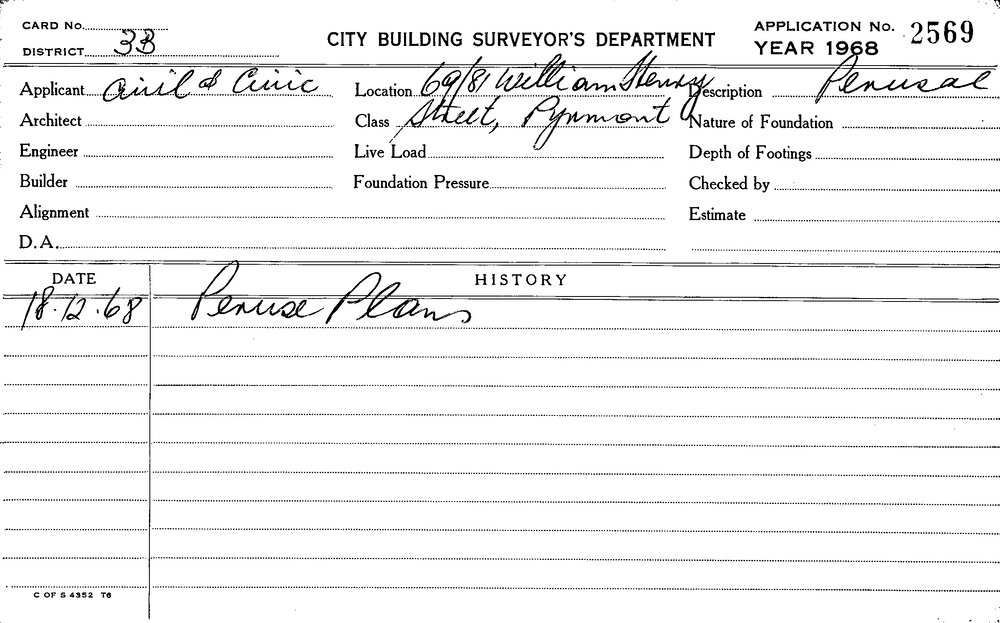 CARD No.
DISTRICT 3B
CITY BUILDING SURVEYOR'S DEPARTMENT
APPLICATION No. 2569
YEAR 1968
Applicant Civil & Civic
Location 69/81 William Henry
Description Perusal
Architect
Class Street, Pyrmont
Nature of Foundation
Engineer
Live Load
Depth of Footings
Builder
Foundation Pressure
Checked by
Alignment
Estimate
D.A.
DATE
HISTORY
18.12.68 Peruse Plans
C OF S 4352 T6